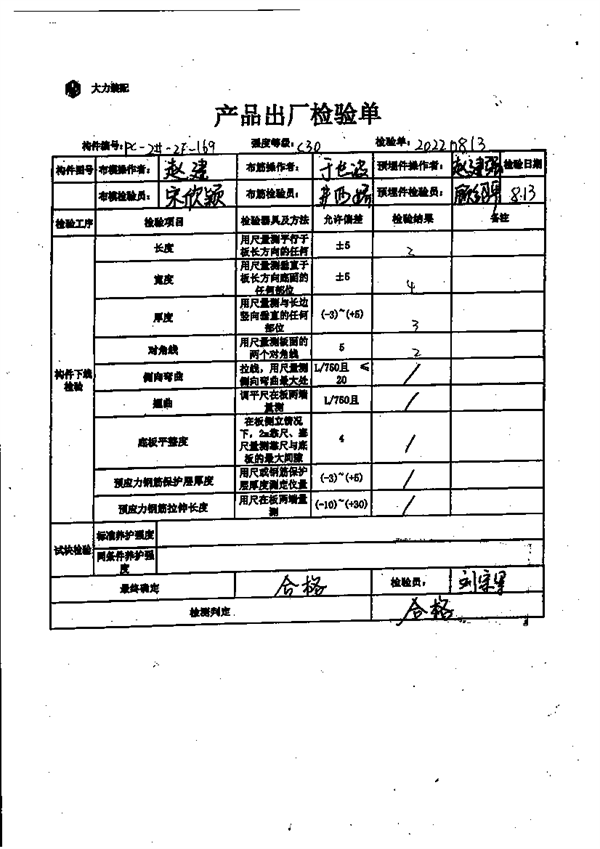 大力装配
产品出厂检验单
构件编号：PC-2#-2F-169 强度等级：C30 检验单：20220813
构件图号 布模操作者： 赵建 布筋操作者： 预埋件操作者： 赵建强 检验日期
布模检验员： 宋欣颖 布筋检验员： 预埋件检验员： 8.13
检验工序 检验项目 检验器具及方法 允许偏差 检验结果 备注
构件下线检验
长度 用尺量测平行于板长方向的任何 ±5 2
宽度 用尺量测垂直于板长方向底面的任何部位 ±5 4
厚度 用尺量测与长边竖向垂直的任何部位 (-3)~(+5) 3
对角线 用尺量测板面的两个对角线 5 2
侧向弯曲 拉线，用尺量测侧向弯曲最大处 L/750且 ≤20 /
翘曲 调平尺在板两端量测 L/750且 /
底板平整度 在板侧立情况下，2m靠尺、塞尺量测靠尺与底板的最大间隙 4 /
预应力钢筋保护层厚度 用尺或钢筋保护层厚度测定仪量 (-3)~(+5) /
预应力钢筋拉伸长度 用尺在板两端量测 (-10)~(+30) /
试块检验 标准养护强度
同条件养护强度
最终确定 合格 检验员：
检测判定 合格